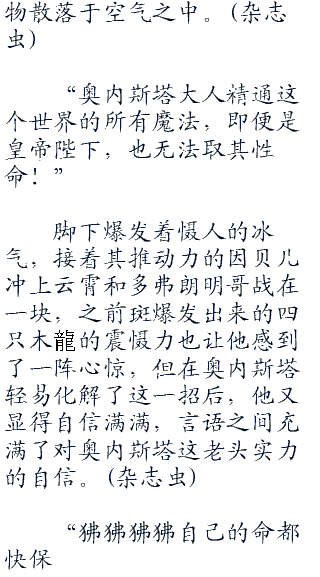 物散落于空气之中。(杂志
虫)
“奥内斯塔大人精通这
个世界的所有魔法，即便是
皇帝陛下，也无法取其性
命！”
脚下爆发着慑人的冰
气，接着其推动力的因贝儿
冲上云霄和多弗朗明哥战在
一块，之前斑爆发出来的四
只木龍的震慑力也让他感到
了一阵心惊，但在奥内斯塔
轻易化解了这一招后，他又
显得自信满满，言语之间充
满了对奥内斯塔这老头实力
的自信。(杂志虫)
“狒狒狒狒自己的命都
快保